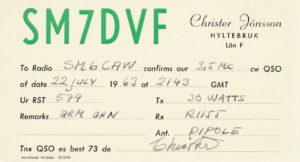 SM7DVF
Christer Jönsson
HYLTEBRUK
Län F
To Radio SM6CAW confirms our 3,5MC cw QSO
of date 22 JULY 1963 at 2143 GMT
Ur RST 579 Tx 20 WATTS
Remarks QRM QRN Rx R1155
Ant. DIPOLE
Tnx QSO es best 73 de Christer